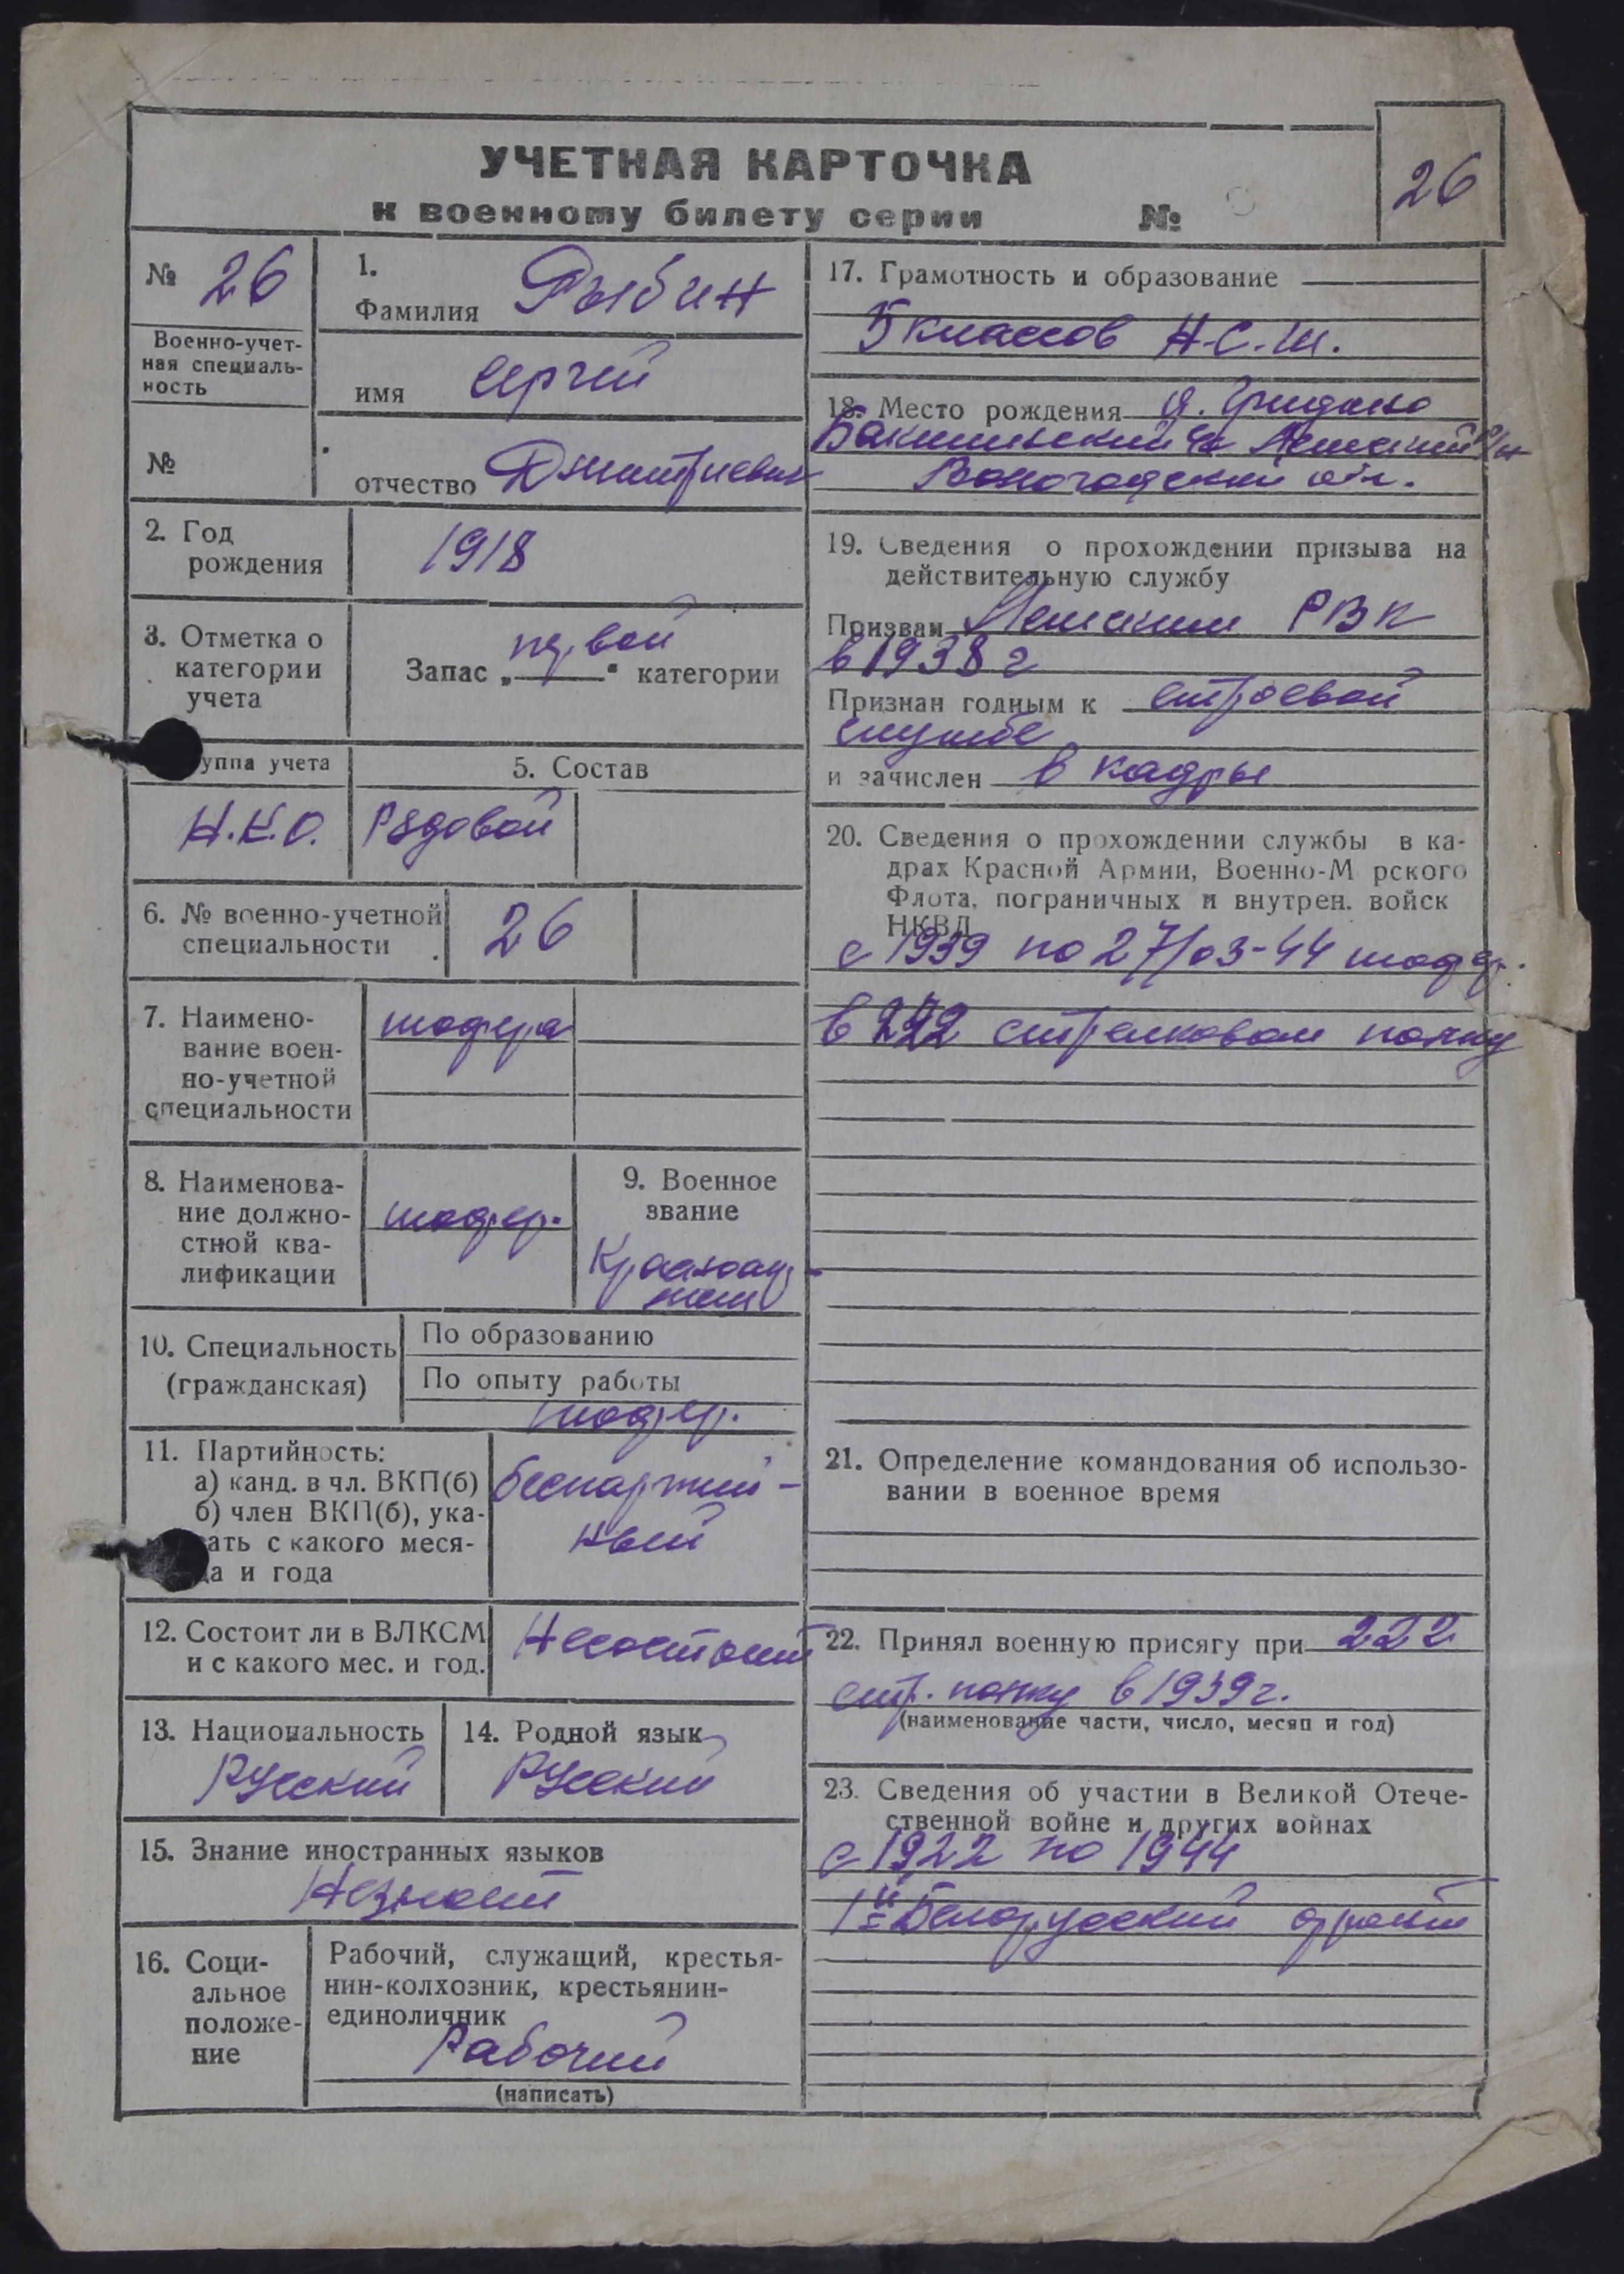 УЧЕТНАЯ КАРТОЧКА
к военному билету серии №
26
№ 26
Военно-учет-
ная специаль-
ность
№
1.
Фамилия Рыбин
имя Сергей
отчество Дмитриевич
2. Год
рождения
1918
3. Отметка о
категории
учета
Запас „первой“ категории
уппа учета
Н.К.О.
5. Состав
Рядовой
6. № военно-учетной
специальности
26
7. Наимено-
вание воен-
но-учетной
специальности
шофера
8. Наименова-
ние должно-
стной ква-
лификации
шофер.
9. Военное
звание
Красноар-
меец
10. Специальность
(гражданская)
По образованию
По опыту работы
шофер.
11. Партийность:
а) канд. в чл. ВКП(б)
б) член ВКП(б), ука-
ать с какого меся-
ца и года
беспартий-
ный
12. Состоит ли в ВЛКСМ
и с какого мес. и год.
Несостоит
13. Национальность
Русский
14. Родной язык
Русский
15. Знание иностранных языков
Незнает
16. Соци-
альное
положе-
ние
Рабочий, служащий, крестья-
нин-колхозник, крестьянин-
единоличник
Рабочий
(написать)
17. Грамотность и образование
5 классов Н.С.Ш.
18. Место рождения д.
р/н
Вологодский обл.
19. Сведения о прохождении призыва на
действительную службу
Призван РВК
в 1938 г
Признан годным к строевой
службе
и зачислен в кадры
20. Сведения о прохождении службы в ка-
драх Красной Армии, Военно-М рского
Флота, пограничных и внутрен. войск
НКВД
с 1939 по 27/03-44 шофер.
в 222 стрелковом полку
21. Определение командования об использо-
вании в военное время
22. Принял военную присягу при 222
стр. полку в 1939г.
(наименование части, число, месяц и год)
23. Сведения об участии в Великой Отече-
ственной войне и других войнах
с 1922 по 1944
1й Белорусский фронт